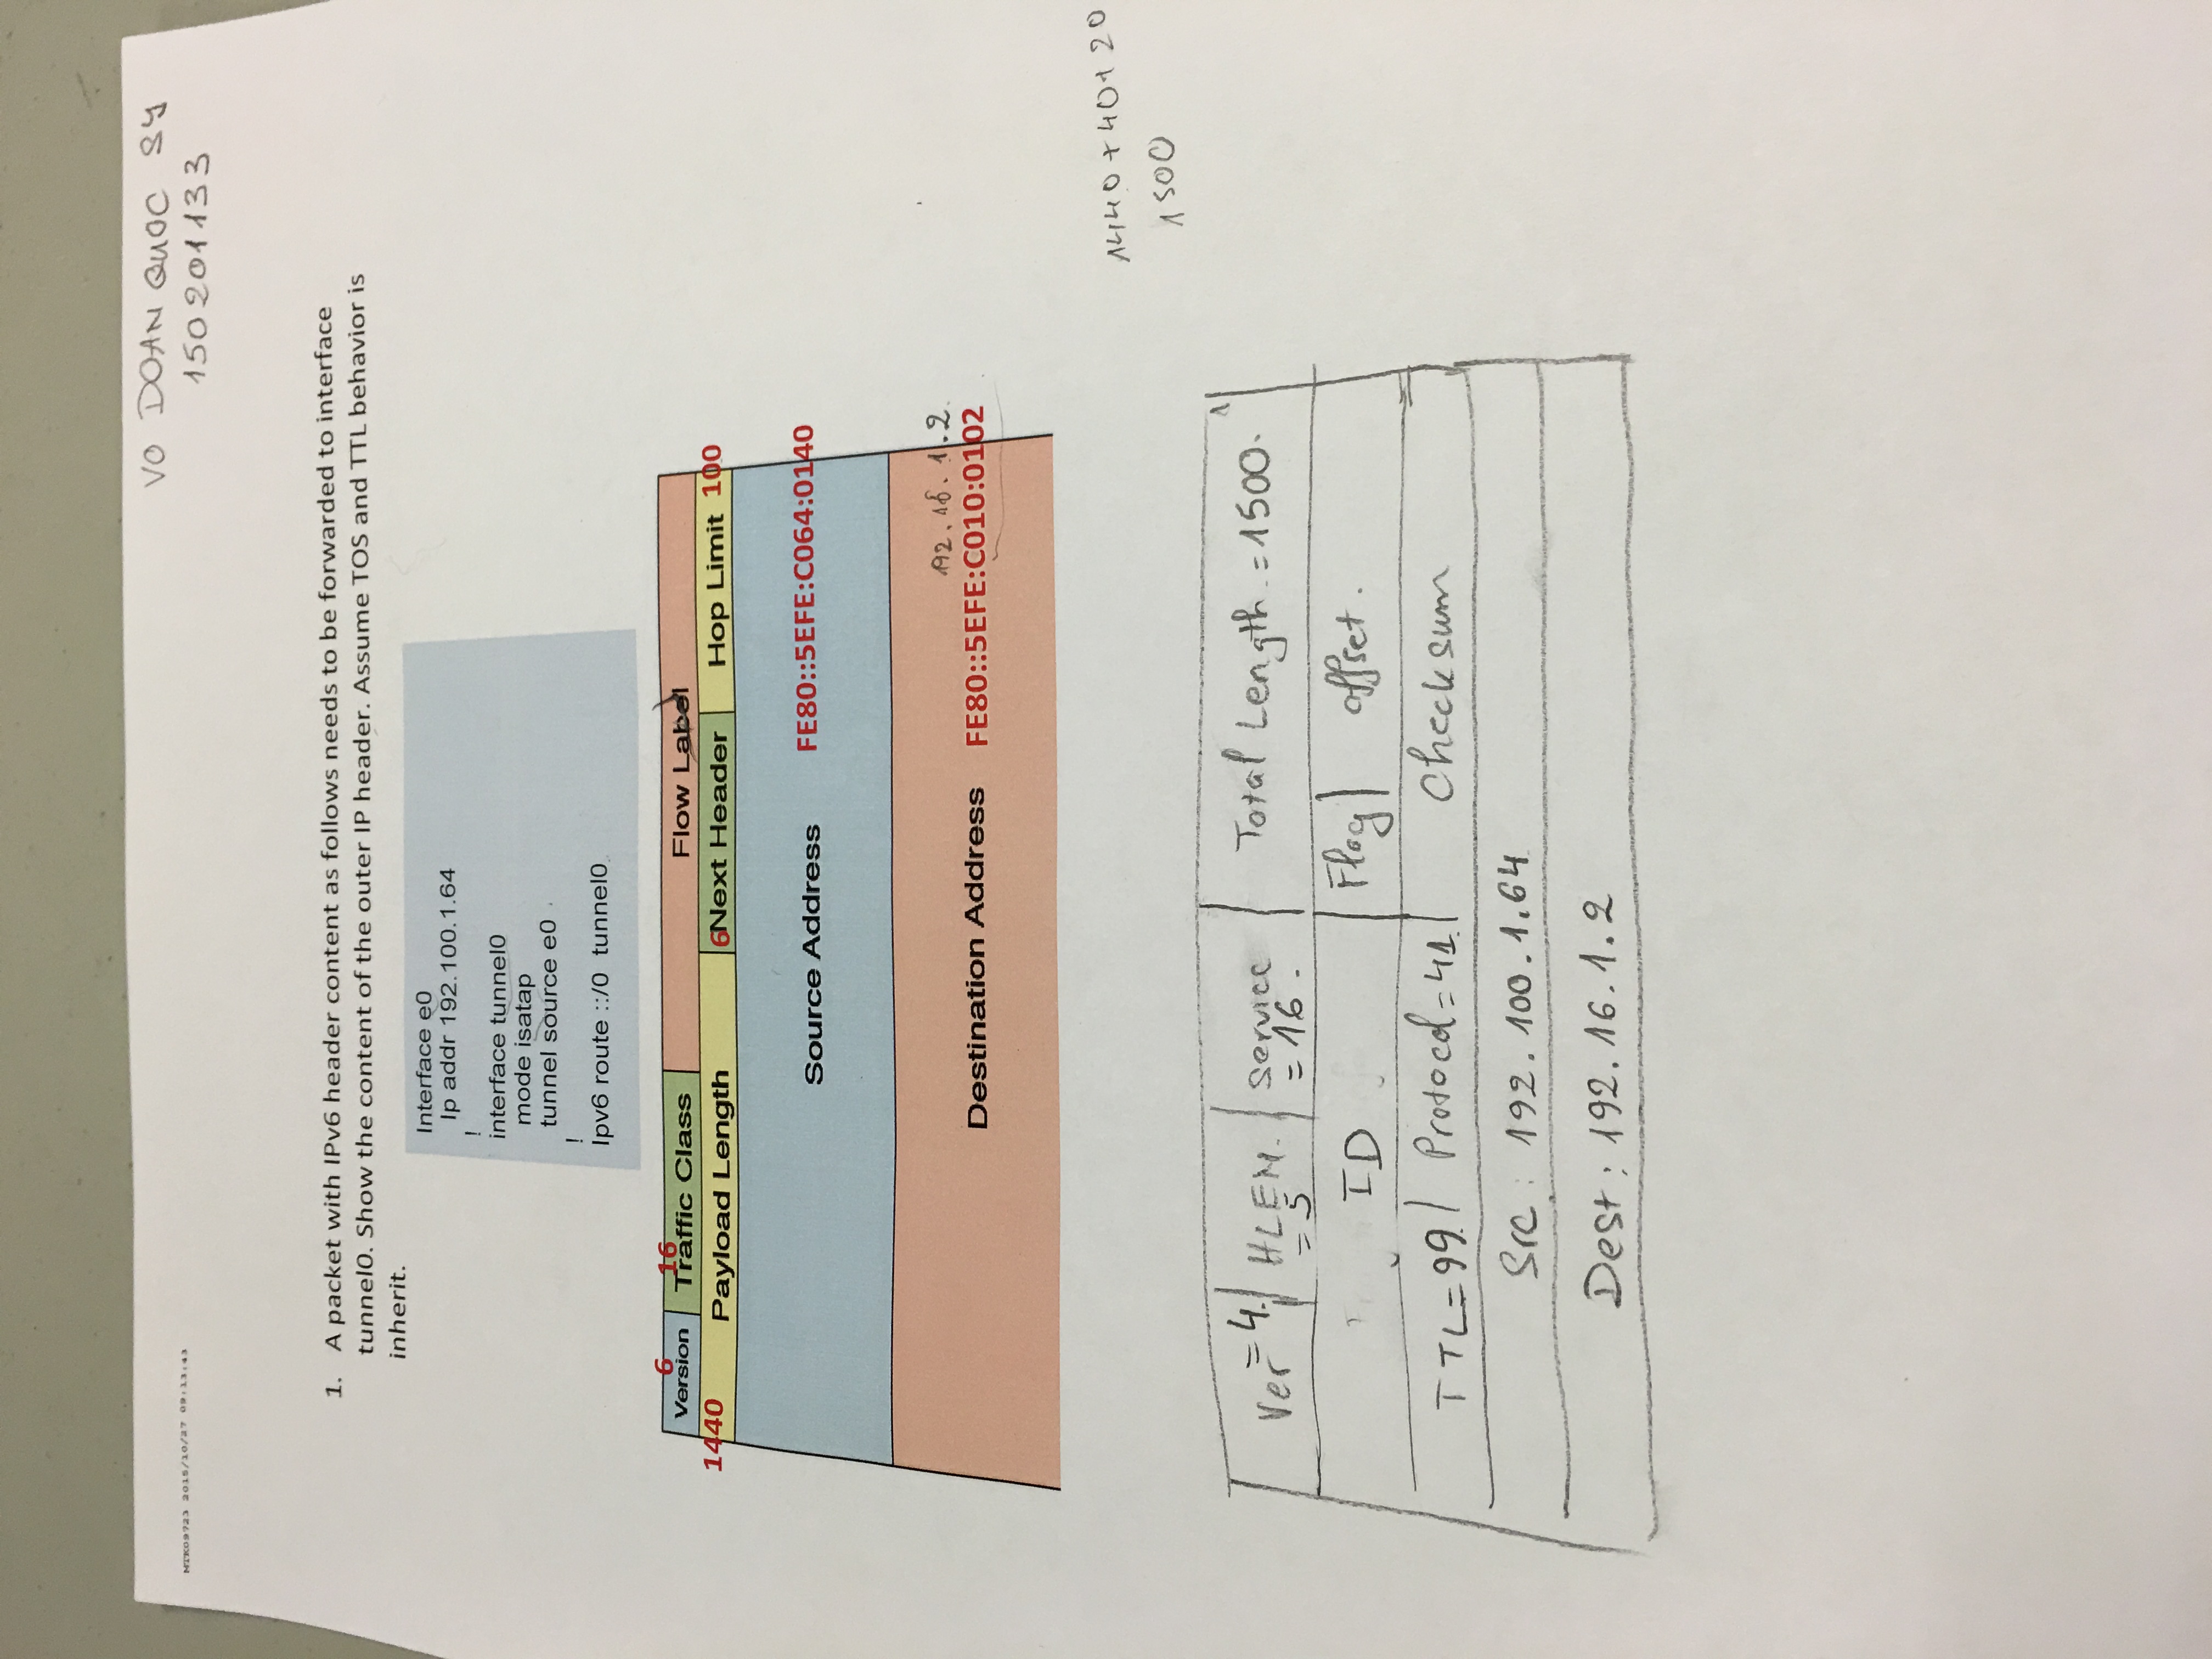 VO DOAN QUOC SY
150201133
MTK09723 2015/10/27 09:13:43
1. A packet with IPv6 header content as follows needs to be forwarded to interface
tunnel0. Show the content of the outer IP header. Assume TOS and TTL behavior is
inherit.
Interface e0
Ip addr 192.100.1.64
!
interface tunnel0
mode isatap
tunnel source e0
!
Ipv6 route ::/0 tunnel0
6 16
Version Traffic Class Flow Label
1440 Payload Length 6 Next Header Hop Limit 100
Source Address FE80::5EFE:C064:0140
192.16.1.2
Destination Address FE80::5EFE:C010:0102
1440+40+20
1500
Ver =4. HLEN. =5 Service =16. Total Length =1500.
ID Flag offset.
TTL=99. Protocol=41. Checksum
Src: 192.100.1.64
Dest: 192.16.1.2